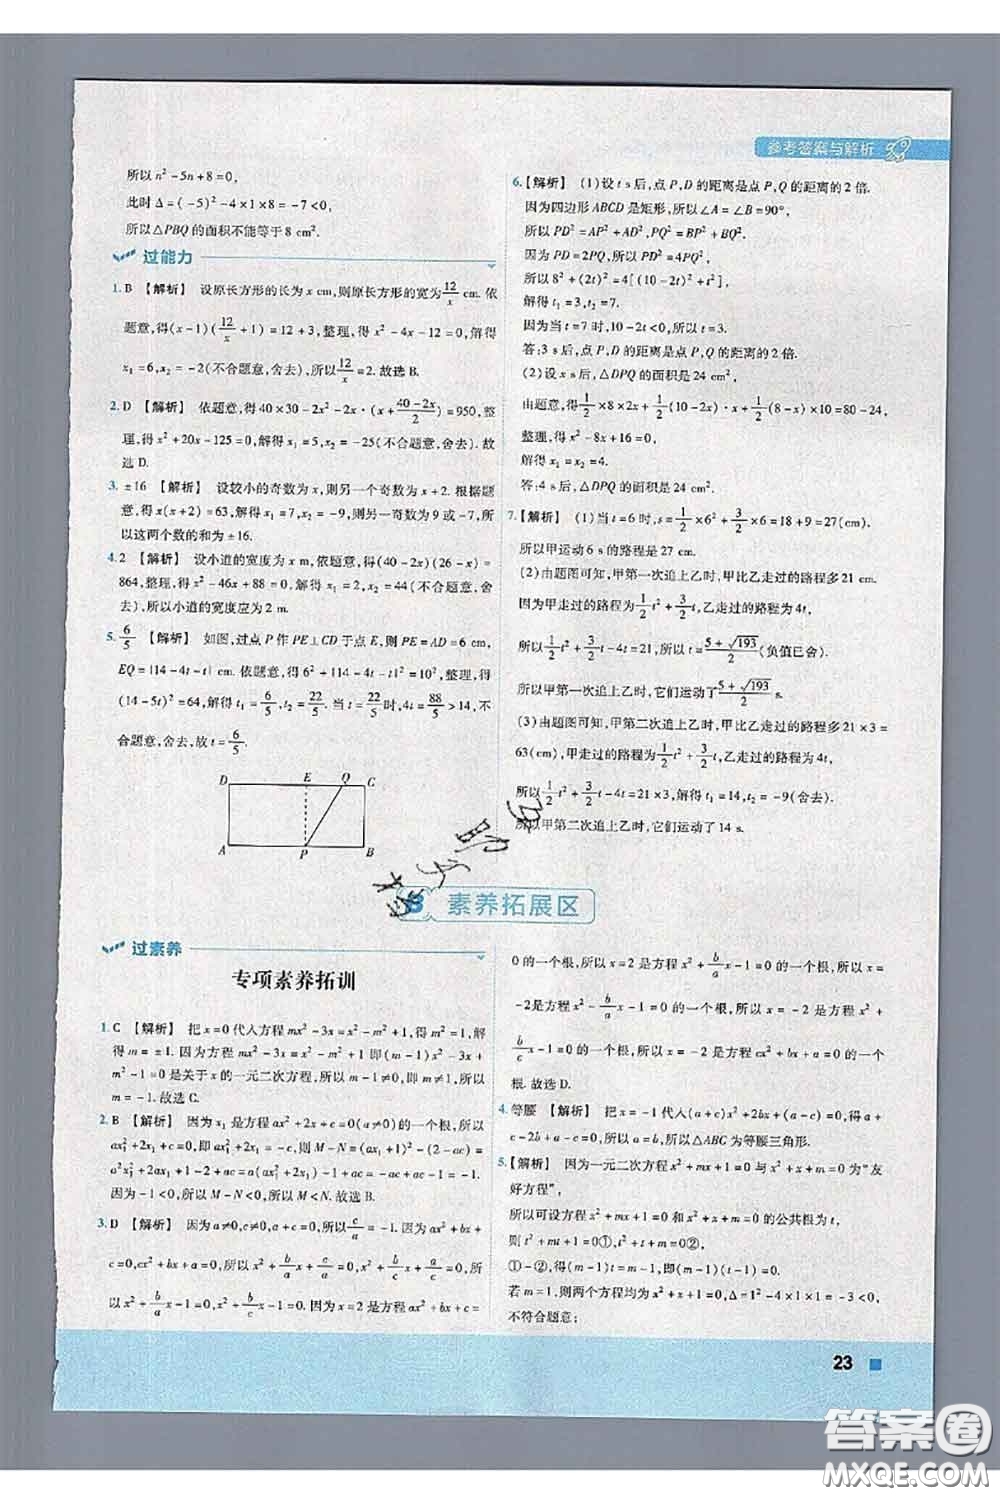 参考答案与解析
所以n²-5n+8=0,
此时Δ=(-5)²-4×1×8=-7<0,
所以△PBQ的面积不能等于8 cm².
过能力
1. B 【解析】 设原长方形的长为x cm,则原长方形的宽为12/x cm. 依
题意,得(x-1)(12/x+1)=12+3,整理,得x²-4x-12=0,解得
x₁=6,x₂=-2(不合题意,舍去),所以12/x=2.故选B.
2. D 【解析】 依题意,得40×30-2x²-2x·(x+(40-2x)/2)=950,整
理,得x²+20x-125=0,解得x₁=5,x₂=-25(不合题意,舍去).故
选D.
3. ±16 【解析】 设较小的奇数为x,则另一个奇数为x+2. 根据题
意,得x(x+2)=63,解得x₁=7,x₂=-9,则另一奇数为9或-7,所
以这两个数的和为±16.
4. 2 【解析】 设小道的宽度为x m,依题意,得(40-2x)(26-x)=
864,整理,得x²-46x+88=0,解得x₁=2,x₂=44(不合题意,舍
去),所以小道的宽度应为2 m.
5. 6/5 【解析】 如图,过点P作PE⊥CD于点E,则PE=AD=6 cm,
EQ=|14-4t-t| cm. 依题意,得6²+|14-4t-t|²=10²,整理,得
(14-5t)²=64,解得t₁=6/5,t₂=22/5. 当t=22/5时,4t=88/5>14,不
合题意,舍去,故t=6/5.
D E Q C
A P B
6.【解析】 (1)设t s后,点P,D的距离是点P,Q的距离的2倍.
因为四边形ABCD是矩形,所以∠A=∠B=90°,
所以PD²=AP²+AD²,PQ²=BP²+BQ².
因为PD=2PQ,所以PD²=4PQ²,
所以8²+(2t)²=4[(10-2t)²+t²],
解得t₁=3,t₂=7.
因为当t=7时,10-2t<0,所以t=3.
答:3 s后,点P,D的距离是点P,Q的距离的2倍.
(2)设x s后,△DPQ的面积是24 cm²,
由题意,得1/2×8×2x+1/2(10-2x)·x+1/2(8-x)×10=80-24,
整理,得x²-8x+16=0,
解得x₁=x₂=4.
答:4 s后,△DPQ的面积是24 cm².
7.【解析】 (1)当t=6时,s=1/2×6²+3/2×6=18+9=27(cm),
所以甲运动6 s的路程是27 cm.
(2)由题图可知,甲第一次追上乙时,甲比乙走过的路程多21 cm.
因为甲走过的路程为1/2t²+3/2t,乙走过的路程为4t,
所以1/2t²+3/2t-4t=21,所以t=(5+√193)/2(负值已舍).
所以甲第一次追上乙时,它们运动了(5+√193)/2 s.
(3)由题图可知,甲第二次追上乙时,甲比乙走过的路程多21×3=
63(cm),甲走过的路程为1/2t²+3/2t,乙走过的路程为4t,
所以1/2t²+3/2t-4t=21×3,解得t₁=14,t₂=-9(舍去).
所以甲第二次追上乙时,它们运动了14 s.
B 素养拓展区
过素养
专项素养拓训
1. C 【解析】 把x=0代入方程mx²-3x=x²-m²+1,得m²=1,解
得m=±1. 因为方程mx²-3x=x²-m²+1即(m-1)x²-3x+
m²-1=0是关于x的一元二次方程,所以m-1≠0,即m≠1,所以
m=-1.故选C.
2. B 【解析】 因为x₁是方程ax²+2x+c=0(a≠0)的一个根,所以
ax₁²+2x₁+c=0,即ax₁²+2x₁=-c,则M-N=(ax₁+1)²-(2-ac)=
a²x₁²+2ax₁+1-2+ac=a(ax₁²+2x₁)+ac-1=-ac+ac-1=-1.
因为-1<0,所以M-N<0,所以M<N.故选B.
3. D 【解析】 因为a≠0,c≠0,a+c=0,所以c/a=-1. 因为ax²+bx+
c=0,cx²+bx+a=0,所以x²+b/a x+c/a=0,c/a x²+b/a x+1=0,所
以x²+b/a x-1=0,x²-b/a x-1=0. 因为x=2是方程ax²+bx+c=
0的一个根,所以x=2是方程x²+b/a x-1=0的一个根,所以x=
-2是方程x²-b/a x-1=0的一个根,所以x=-2是方程x²+
b/c x-1=0的一个根,所以x=-2是方程cx²+bx+a=0的一个
根.故选D.
4. 等腰 【解析】 把x=-1代入(a+c)x²+2bx+(a-c)=0,得a+
c-2b+a-c=0,所以a=b,所以△ABC为等腰三角形.
5.【解析】 因为一元二次方程x²+mx+1=0与x²+x+m=0为“友
好方程”,
所以可设方程x²+mx+1=0和x²+x+m=0的公共根为t,
则t²+tm+1=0①,t²+t+m=0②,
①-②,得(m-1)t=m-1,即(m-1)(t-1)=0.
若m=1,则两个方程均为x²+x+1=0,Δ=1-4=-3<0,
不符合题意;
23
答案圈
MXQE.COM